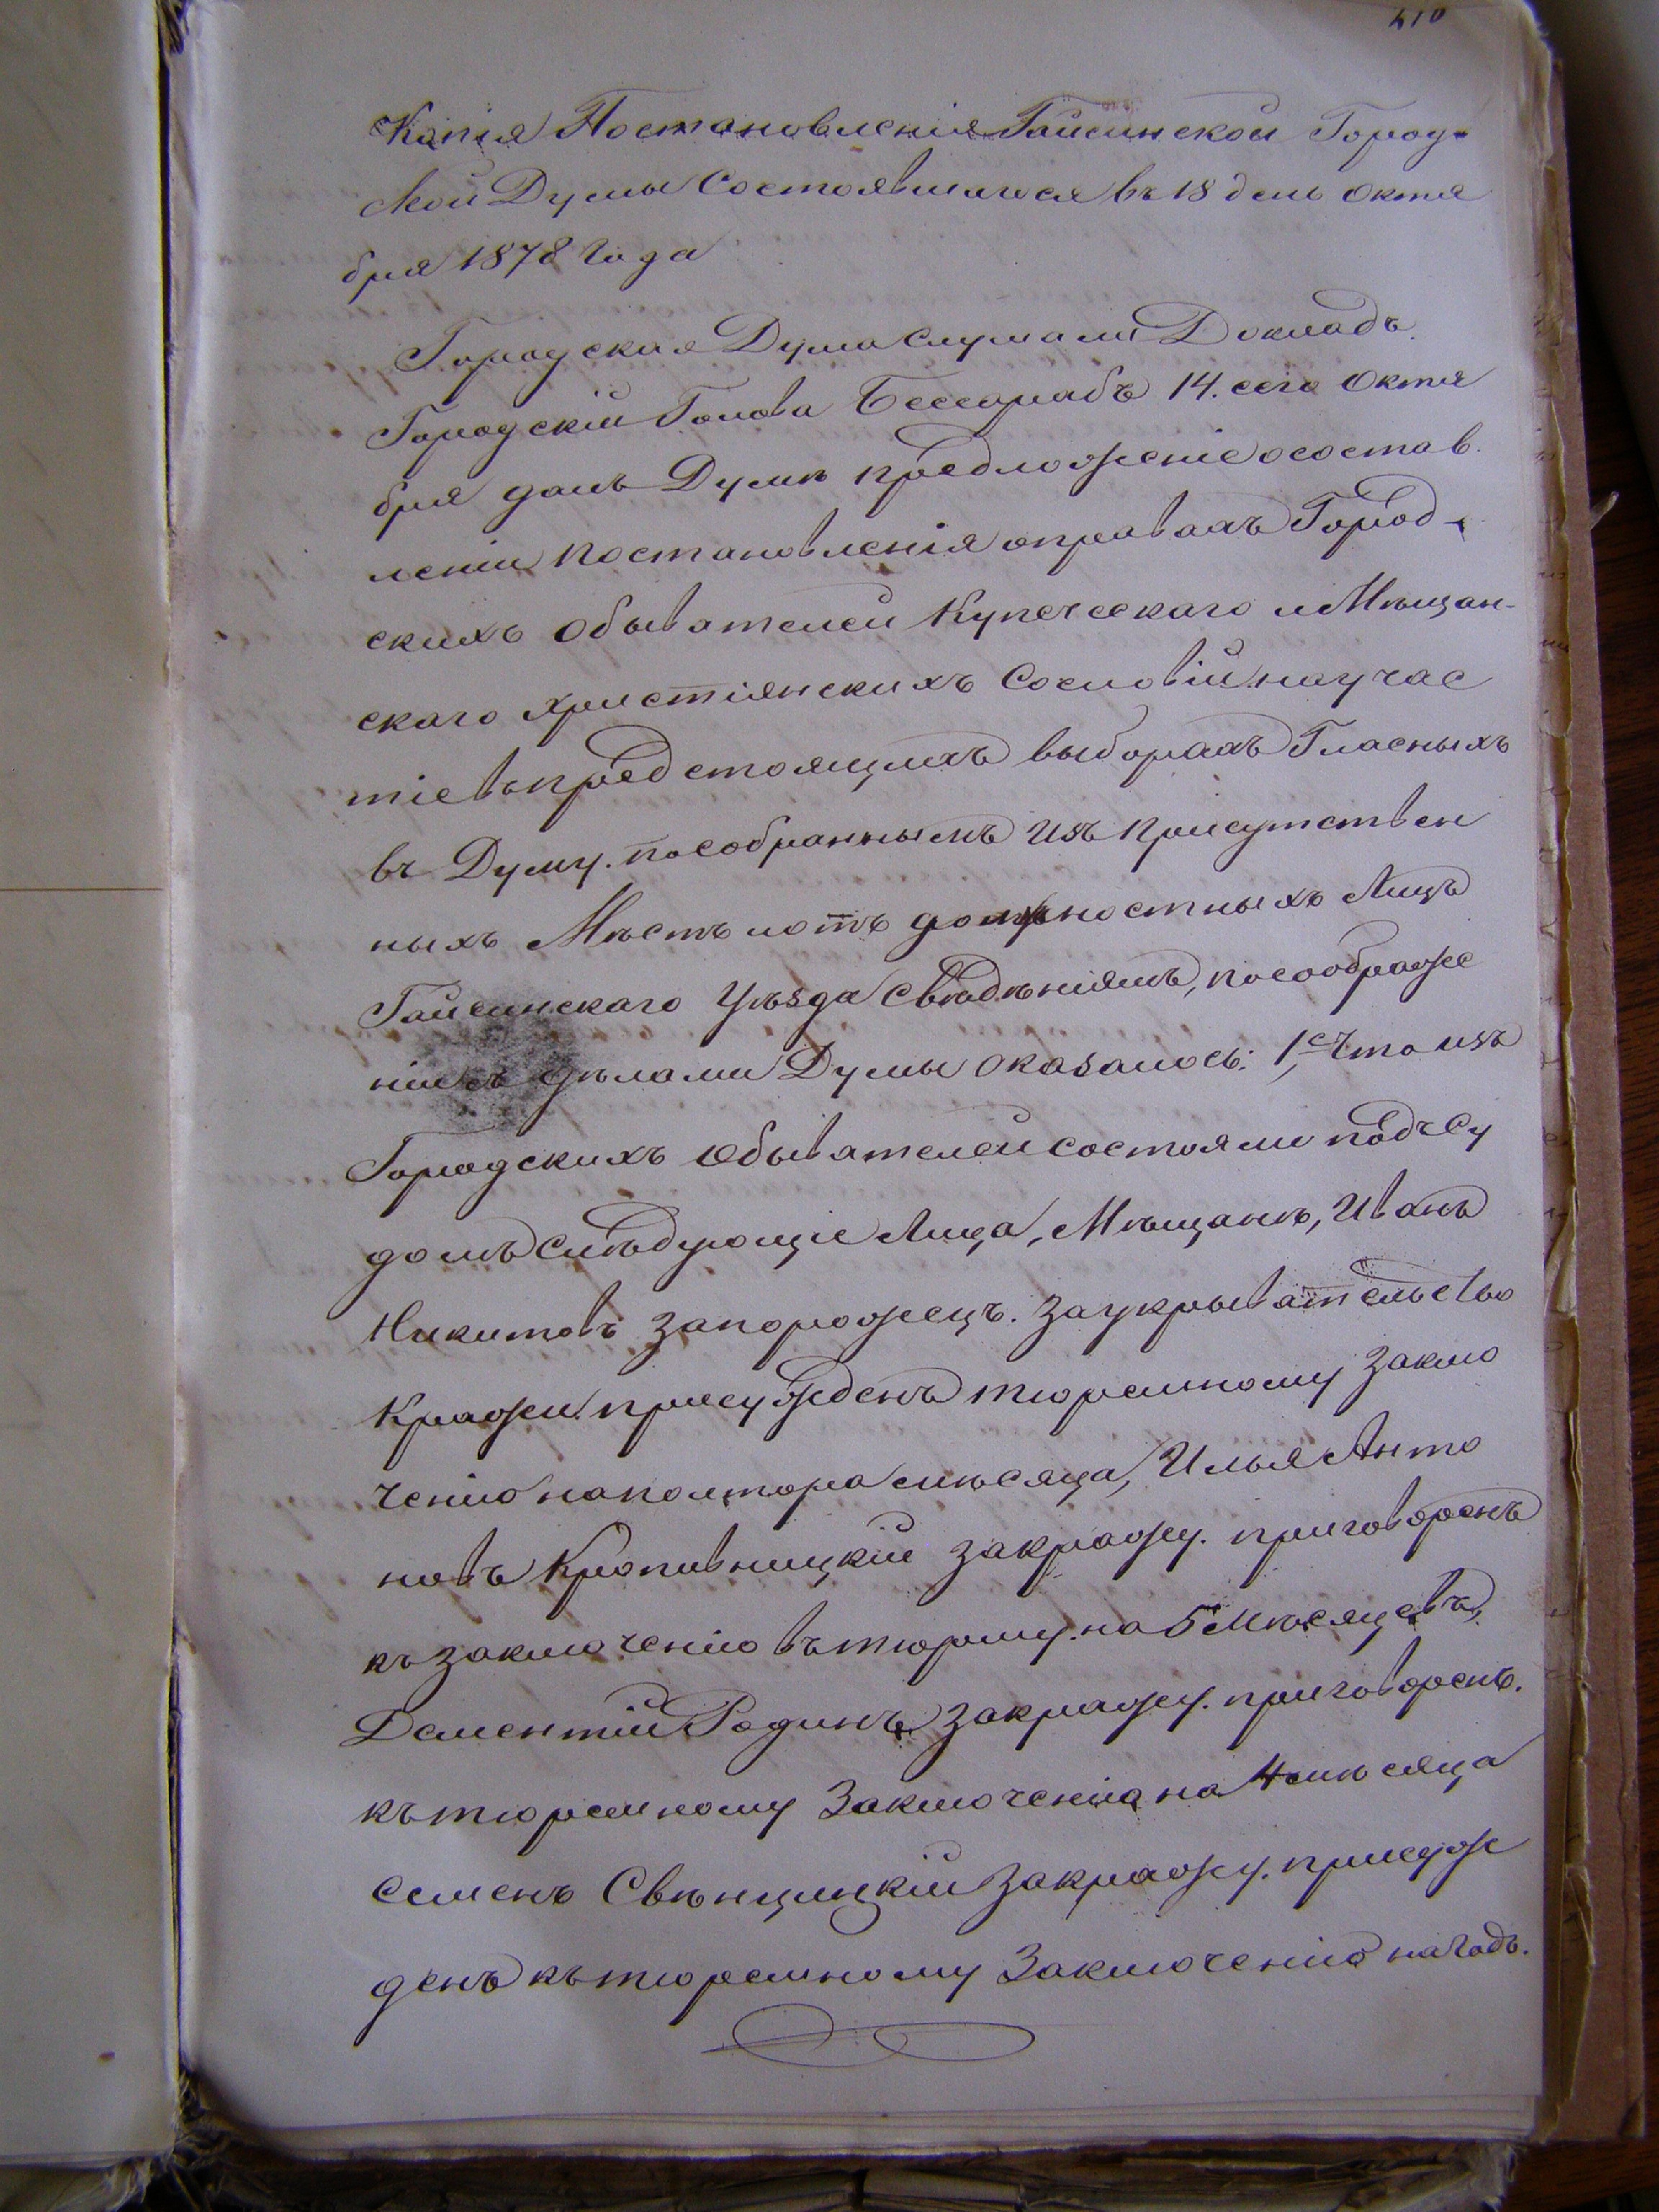 410
Копія Постановленія Гайсинской Город-
ской Думы Состоявшагося въ 18 день Октя
бря 1878 Года
Городская Дума Слушали Докладъ.
Городскій Голова Бессарабъ 14. сего Октя
бря далъ Думѣ предложеніе о состав
леніи постановленія о правахъ Город-
скихъ Обывателей Купеческаго и Мѣщан-
скаго христіянскихъ Сословій на учас
тіе въ предстоящихъ выборахъ Гласныхъ
въ Думу. по собраннымъ изъ присутствен
ныхъ Мѣстъ и отъ должностныхъ Лицъ
Гайсинскаго Уѣзда Свѣдѣніямъ, по соображе
ніи съ дѣлами Думы оказалось: 1е, Что изъ
Городскихъ Обывателей состояли подъ Су
домъ Слѣдующіе Лица, Мѣщанѣ, Иванъ
Никитовъ Запорожецъ. За укрывательство
Кражи. присужденъ тюремному Заклю
ченію на полтора мѣсяца, Илья Анто
новъ Кропивницкій за кражу. приговоренъ
къ заключенію въ тюрьму. на 5 Мѣсяцевъ,
Дементій Родинъ за кражу. приговоренъ.
къ тюремному Заключенію на 4 мѣсяца
Семенъ Свѣнцицкій за кражу. присуж
денъ къ тюремному Заключенію на Годъ.